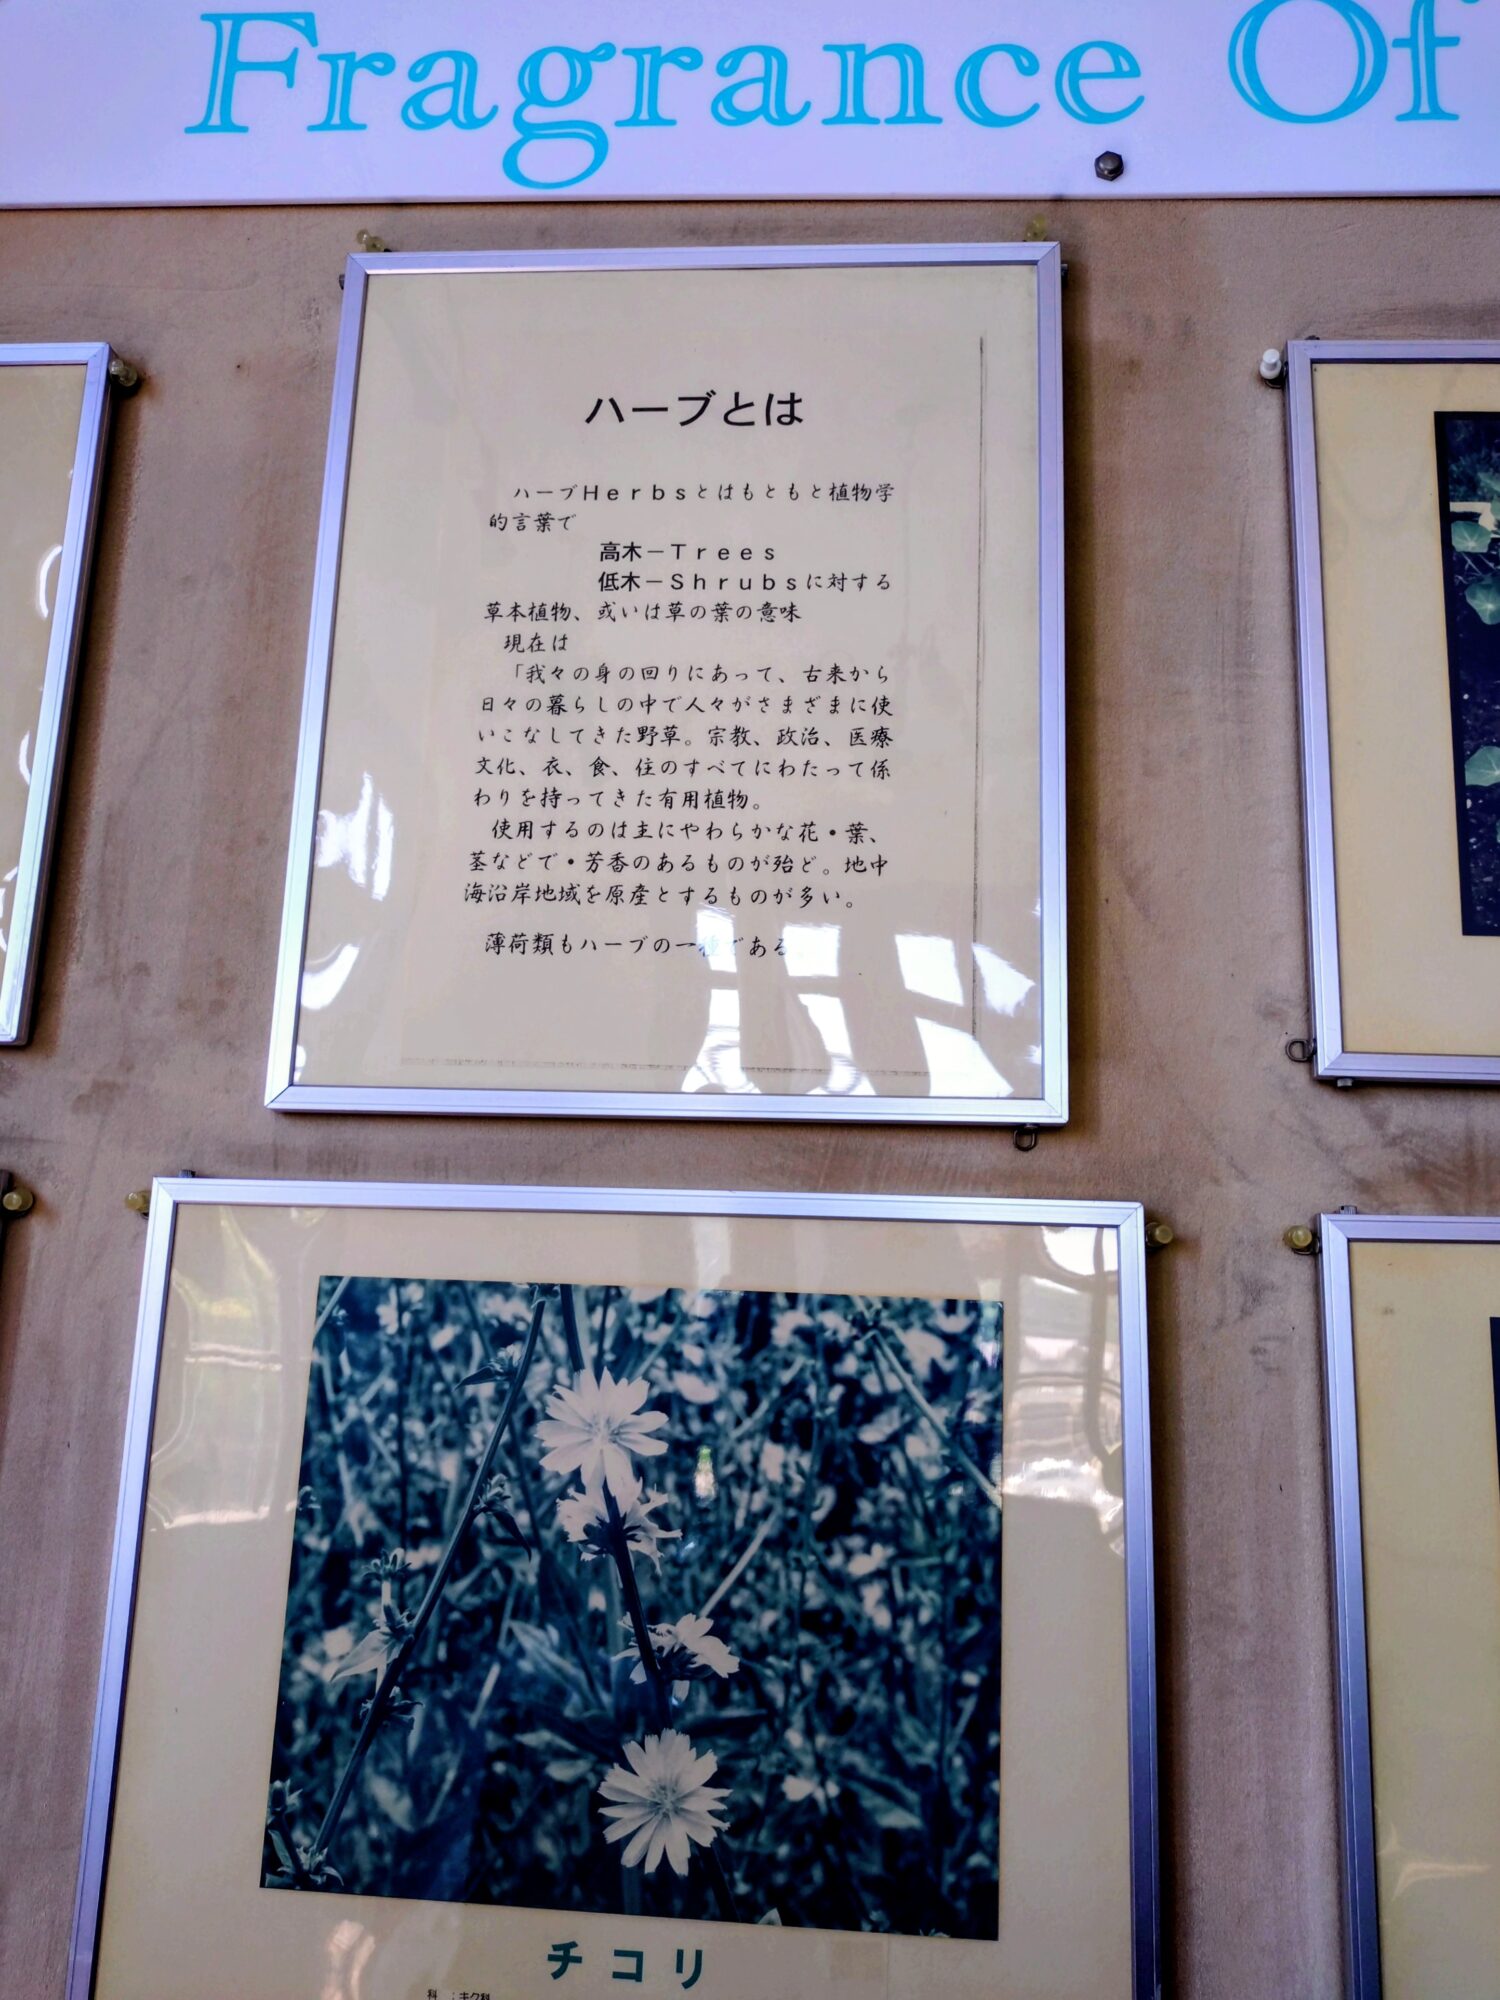 Fragrance Of
ハーブとは
ハーブHerbsとはもともと植物学
的言葉で
高木－Trees
低木－Shrubsに対する
草本植物、或いは草の葉の意味
現在は
「我々の身の回りにあって、古来から
日々の暮らしの中で人々がさまざまに使
いこなしてきた野草。宗教、政治、医療
文化、衣、食、住のすべてにわたって係
わりを持ってきた有用植物。
使用するのは主にやわらかな花・葉、
茎などで・芳香のあるものが殆ど。地中
海沿岸地域を原産とするものが多い。
薄荷類もハーブの一種である
チコリ
科：キク科